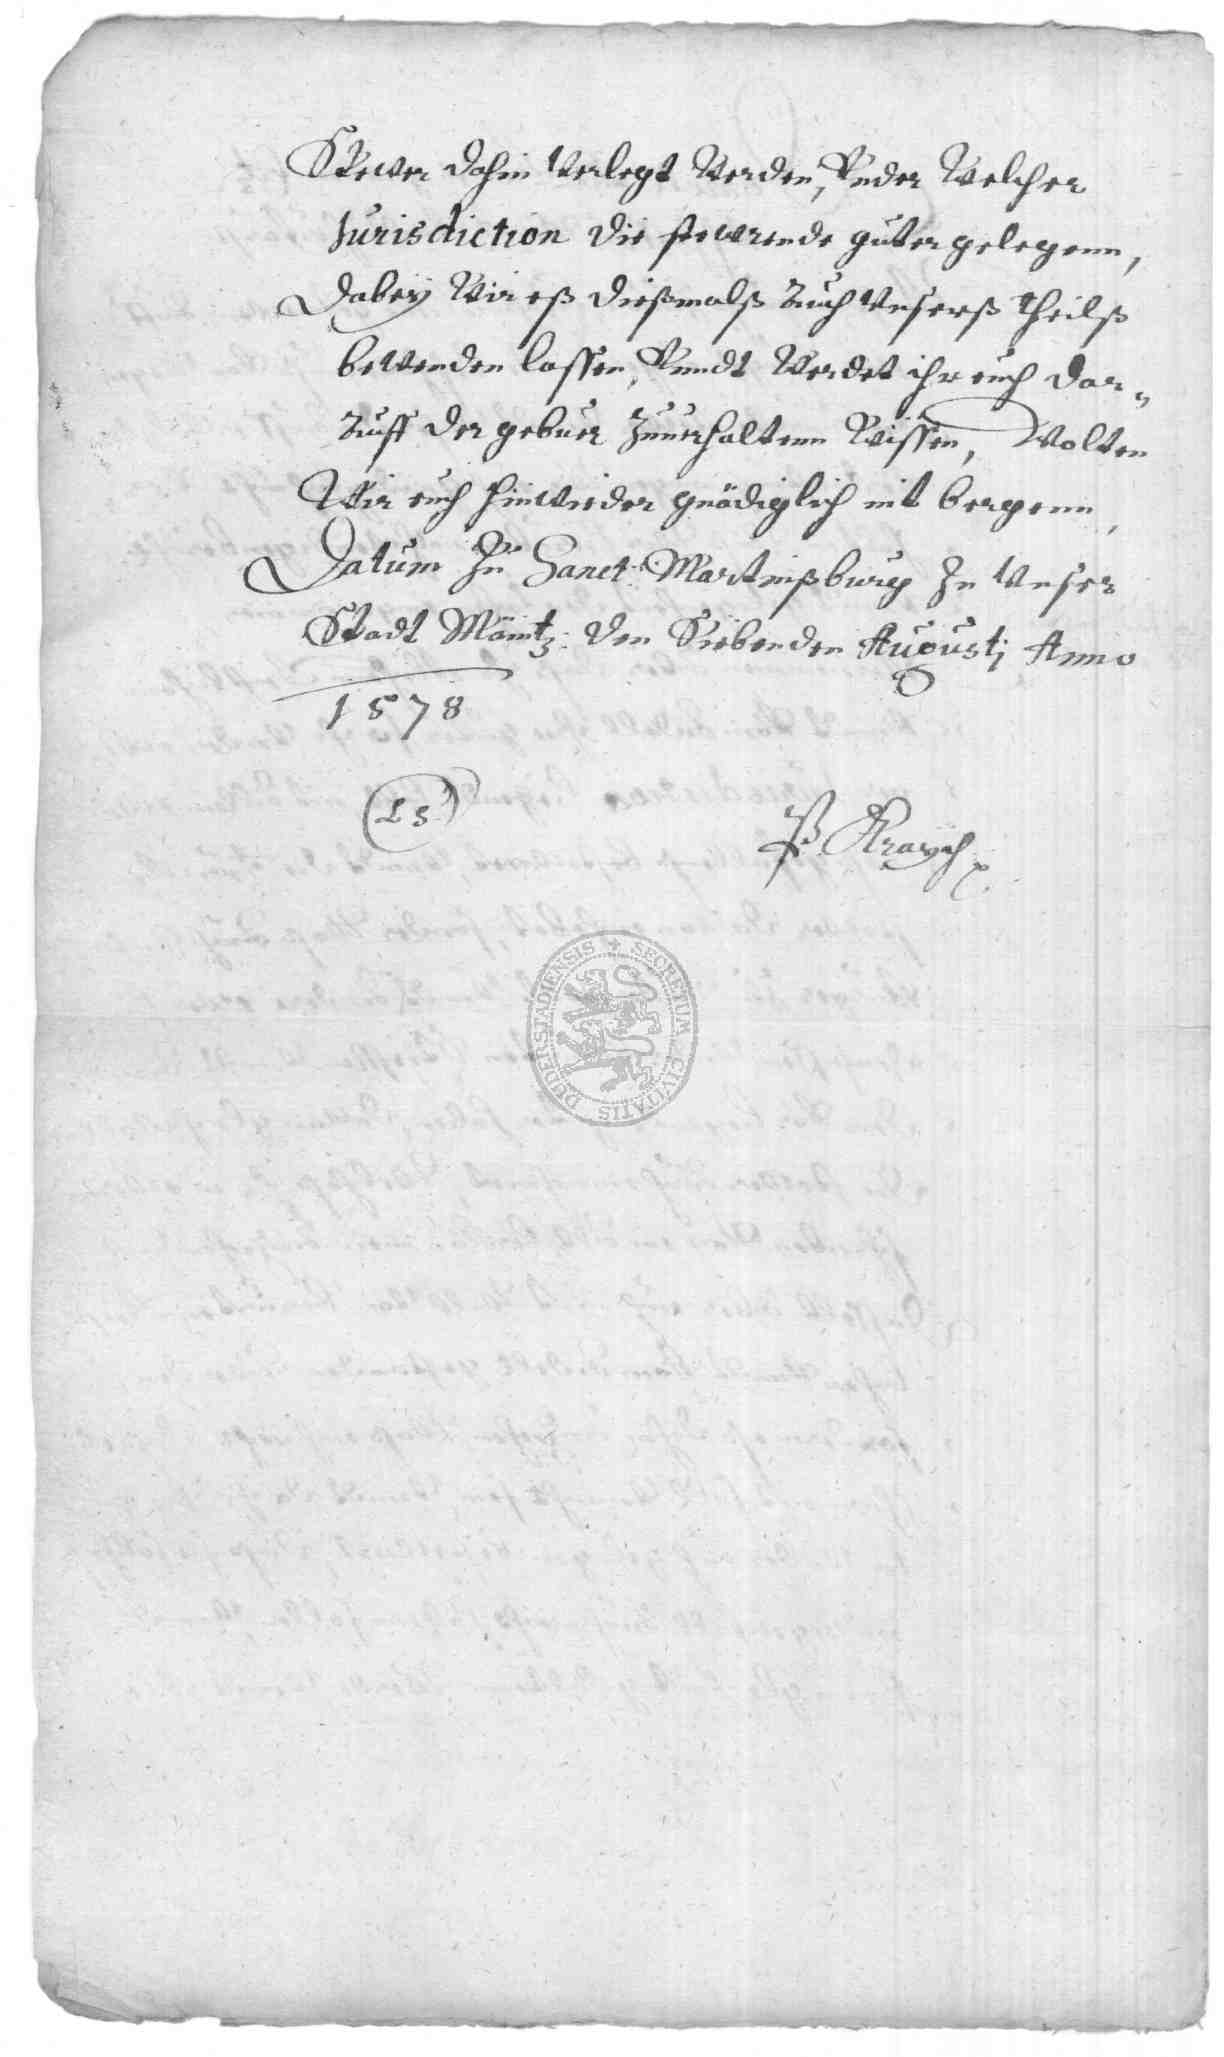 Stewer dahin Verlegt Werden, Under Welcher
Jurisdiction die stewrende güter gelegenn,
Dabeÿ Wir eß dießmalß Auch Unserß theilß
bewenden lassen, Unndt Werdet ihr euch dar„
Auff der gebuer Zuuerhaltenn Wissen, Wolten
Wir euch hinwieder gnädiglich nit bergenn,
Datum Zu Sanct: Martinßburg In Unser
Stadt Mäintz. Den Siebenden Augustj Anno
1578
(L S)
DUDERSTADIENSIS + SECRETUM CIVITATIS